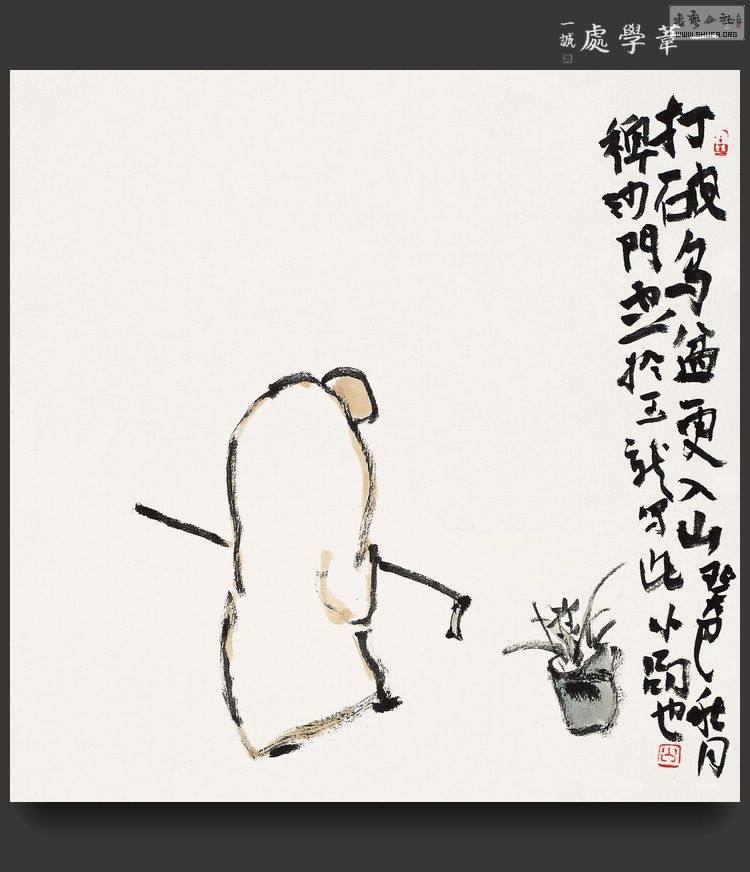 書藝公社
WWW.SHUFA.ORG
一葦學處
一誠
打破烏盆更入山 癸巳秋月
禪沙門於玉龍写此小品也